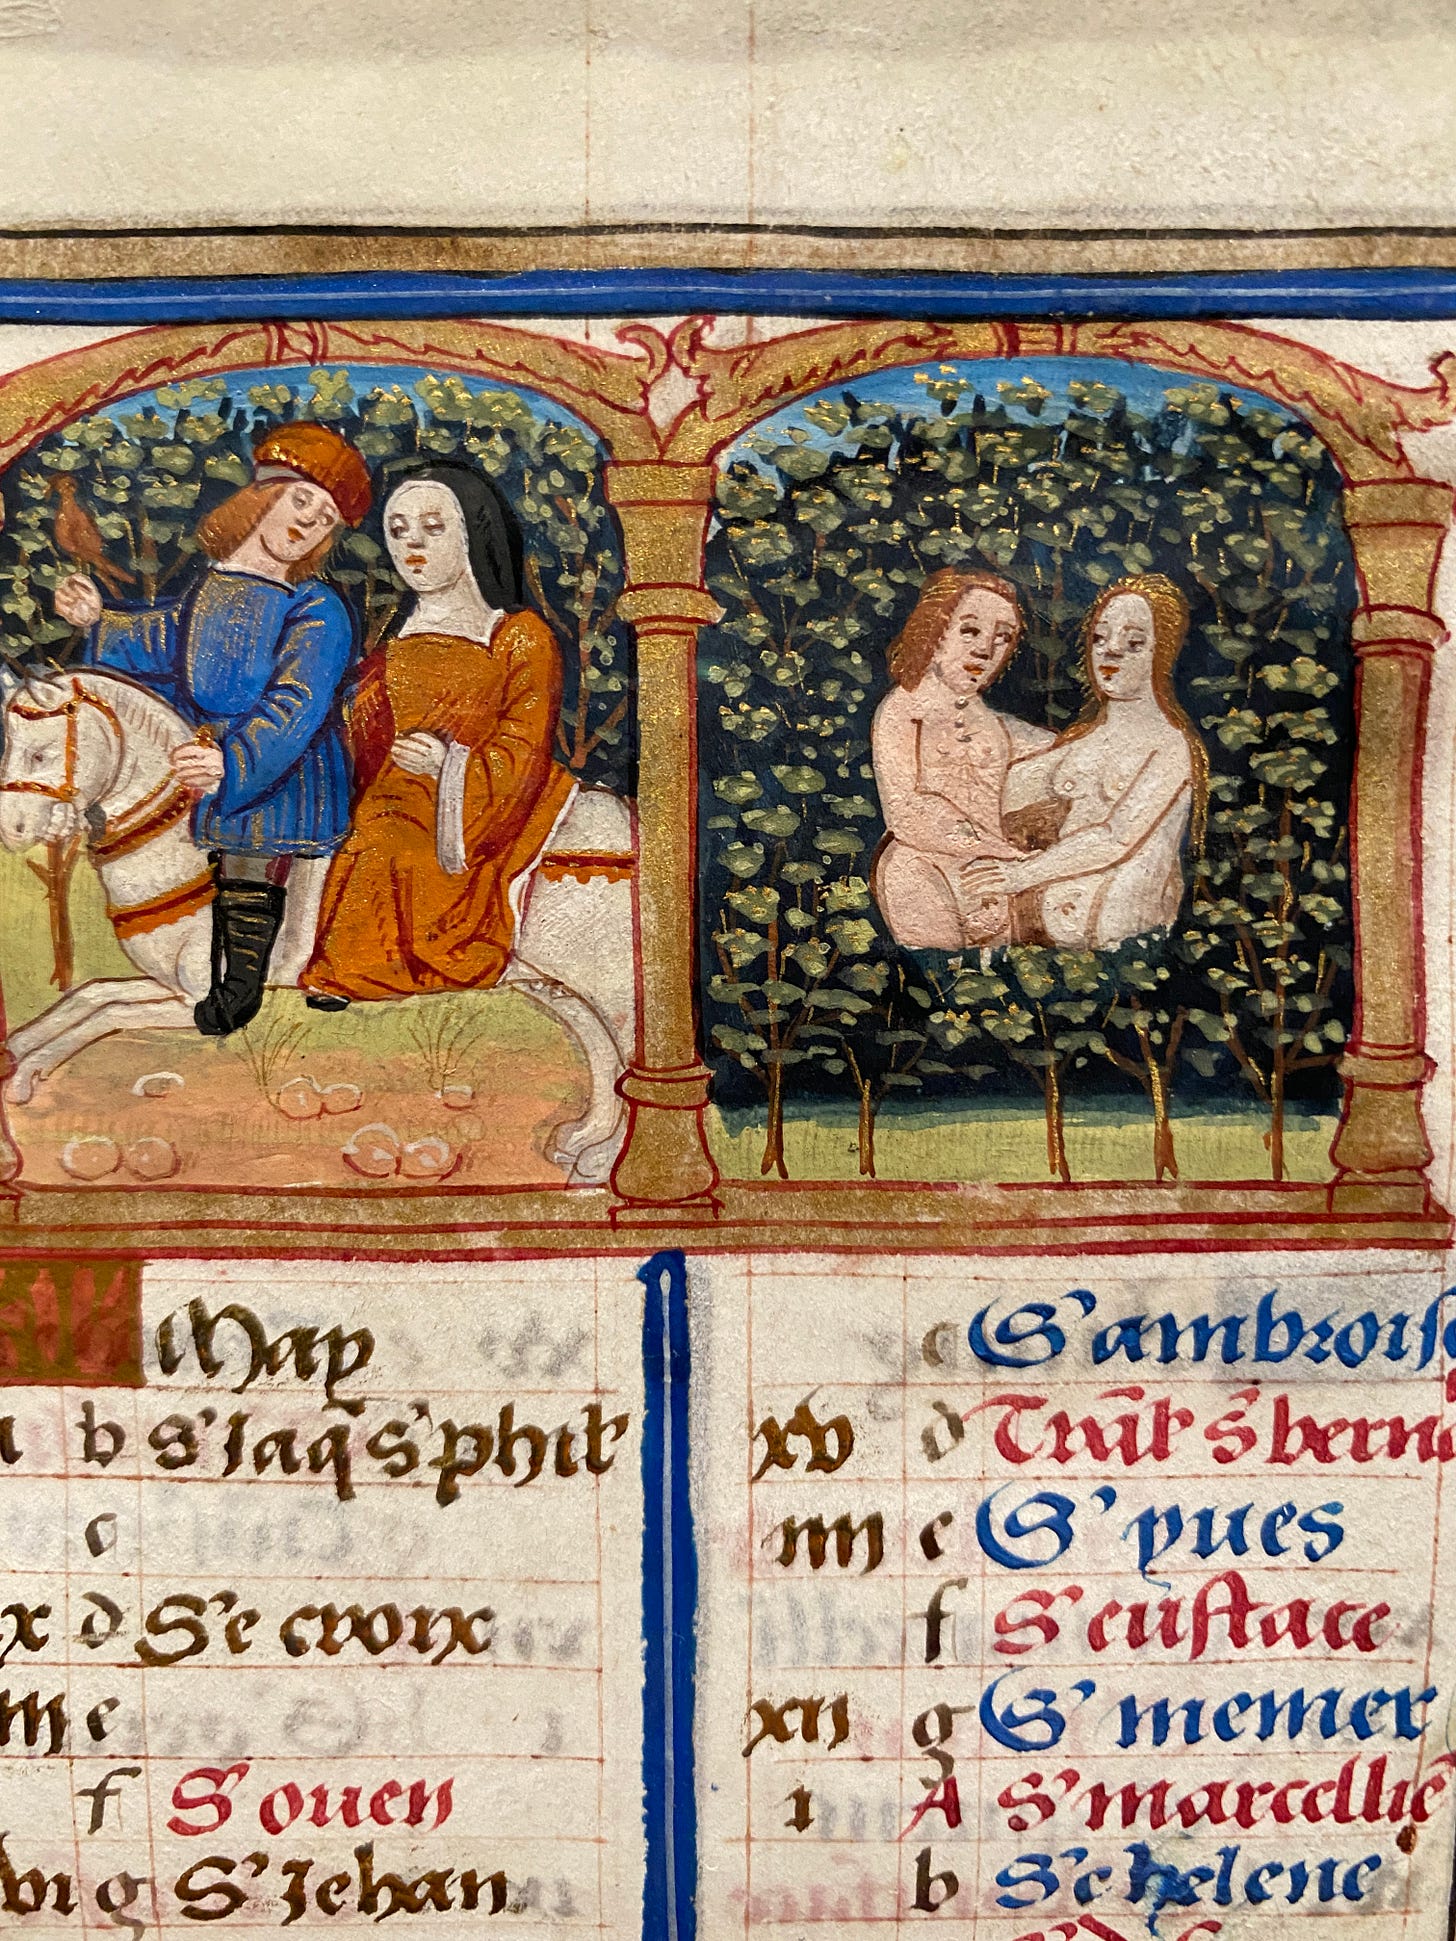 May
b S' Jaq̃ S' phil̃
c
x d S'e croix
e
f S' ouen
vi g S' Jehan
c S' ambrois
xv d Trãsl̃ s̃ bern
iiii e S' yues
f S' eustace
xii g S' memer
i A S' marcelliẽ
b S'e helene